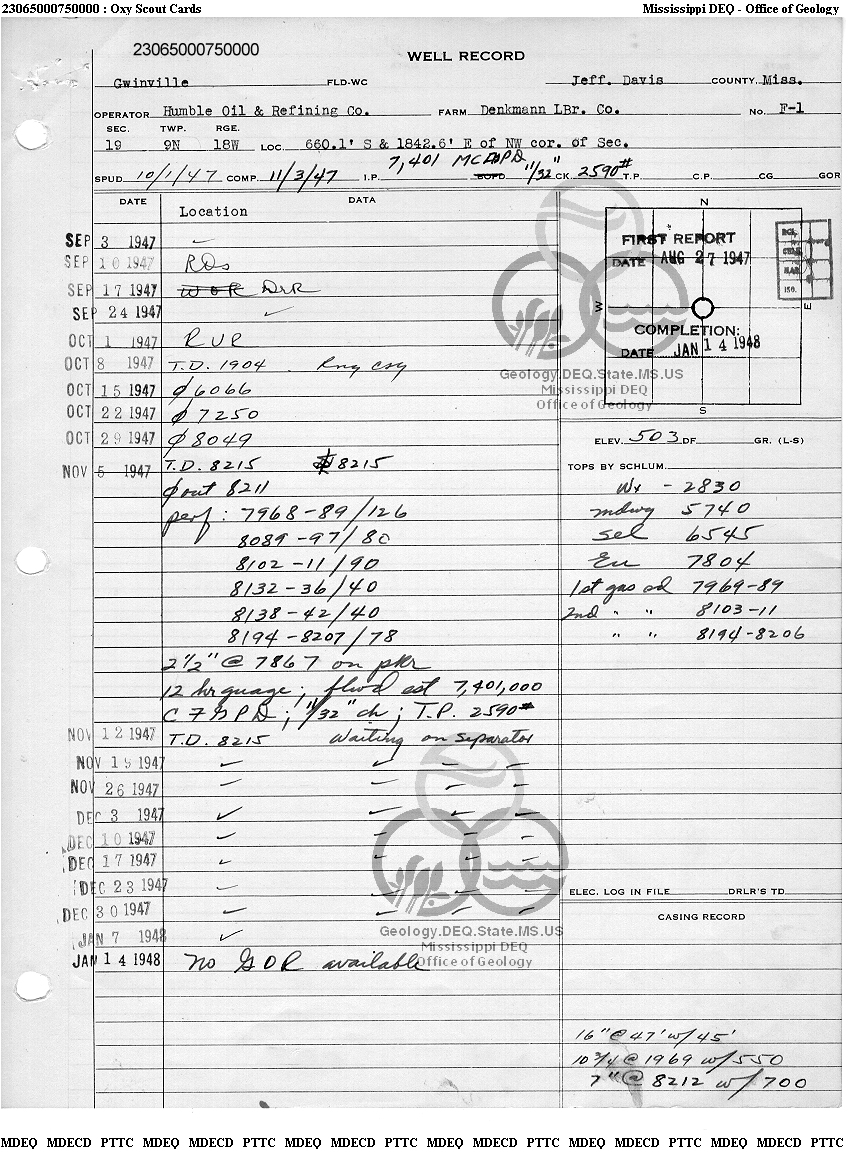 23065000750000 : Oxy Scout Cards Mississippi DEQ - Office of Geology
23065000750000
WELL RECORD
Gwinville FLD-WC Jeff. Davis COUNTY Miss.
OPERATOR Humble Oil & Refining Co. FARM Denkmann LBr. Co. No. F-1
SEC. TWP. RGE.
19 9N 18W LOC. 660.1' S & 1842.6' E of NW cor. of Sec.
SPUD 10/1/47 COMP. 11/3/47 I.P. 7,401 MCFGPD BOPD 11/32" CK. 2590# T.P. C.P. CG GOR
DATE DATA
Location
SEP 3 1947 ✓
SEP 10 1947 RDs
SEP 17 1947 WOR DrR
SEP 24 1947 ✓
OCT 1 1947 RUR
OCT 8 1947 T.D. 1904 Rng csg
OCT 15 1947 ϕ 6066
OCT 22 1947 ϕ 7250
OCT 29 1947 ϕ 8049
NOV 5 1947 T.D. 8215 8215
ϕ out 8211
perf: 7968-89/126
8089-97/80
8102-11/90
8132-36/40
8138-42/40
8194-8207/78
2 1/2" @ 7867 on pkr
12 hr guage; flwd est 7,401,000
CFGPD; 11/32" ch; T.P. 2590#
NOV 12 1947 T.D. 8215 Waiting on separator
NOV 19 1947 ✓ ✓ – –
NOV 26 1947 ✓ – – –
DEC 3 1947 ✓ – ✓ –
DEC 10 1947 – – –
DEC 17 1947 ✓ ✓ – –
DEC 23 1947 – – – –
DEC 30 1947 ✓ – – –
JAN 7 1948 ✓
JAN 14 1948 No GOR available
N
W
E
S
FIRST REPORT
DATE AUG 27 1947
COMPLETION:
DATE JAN 14 1948
ISO.
Geology.DEQ.State.MS.US
Mississippi DEQ
Office of Geology
ELEV. 503 DF GR. (L-S)
TOPS BY SCHLUM.
Wx - 2830
mdwy 5740
Sel 6545
Eu 7804
1st gas sd 7969-89
2nd " " 8103-11
" " 8194-8206
Geology.DEQ.State.MS.US
Mississippi DEQ
Office of Geology
ELEC. LOG IN FILE DRLR'S TD
CASING RECORD
16" @ 47' w/45'
10 3/4 @ 1969 w/550
7" @ 8212 w/700
MDEQ MDECD PTTC MDEQ MDECD PTTC MDEQ MDECD PTTC MDEQ MDECD PTTC MDEQ MDECD PTTC MDEQ MDECD PTTC